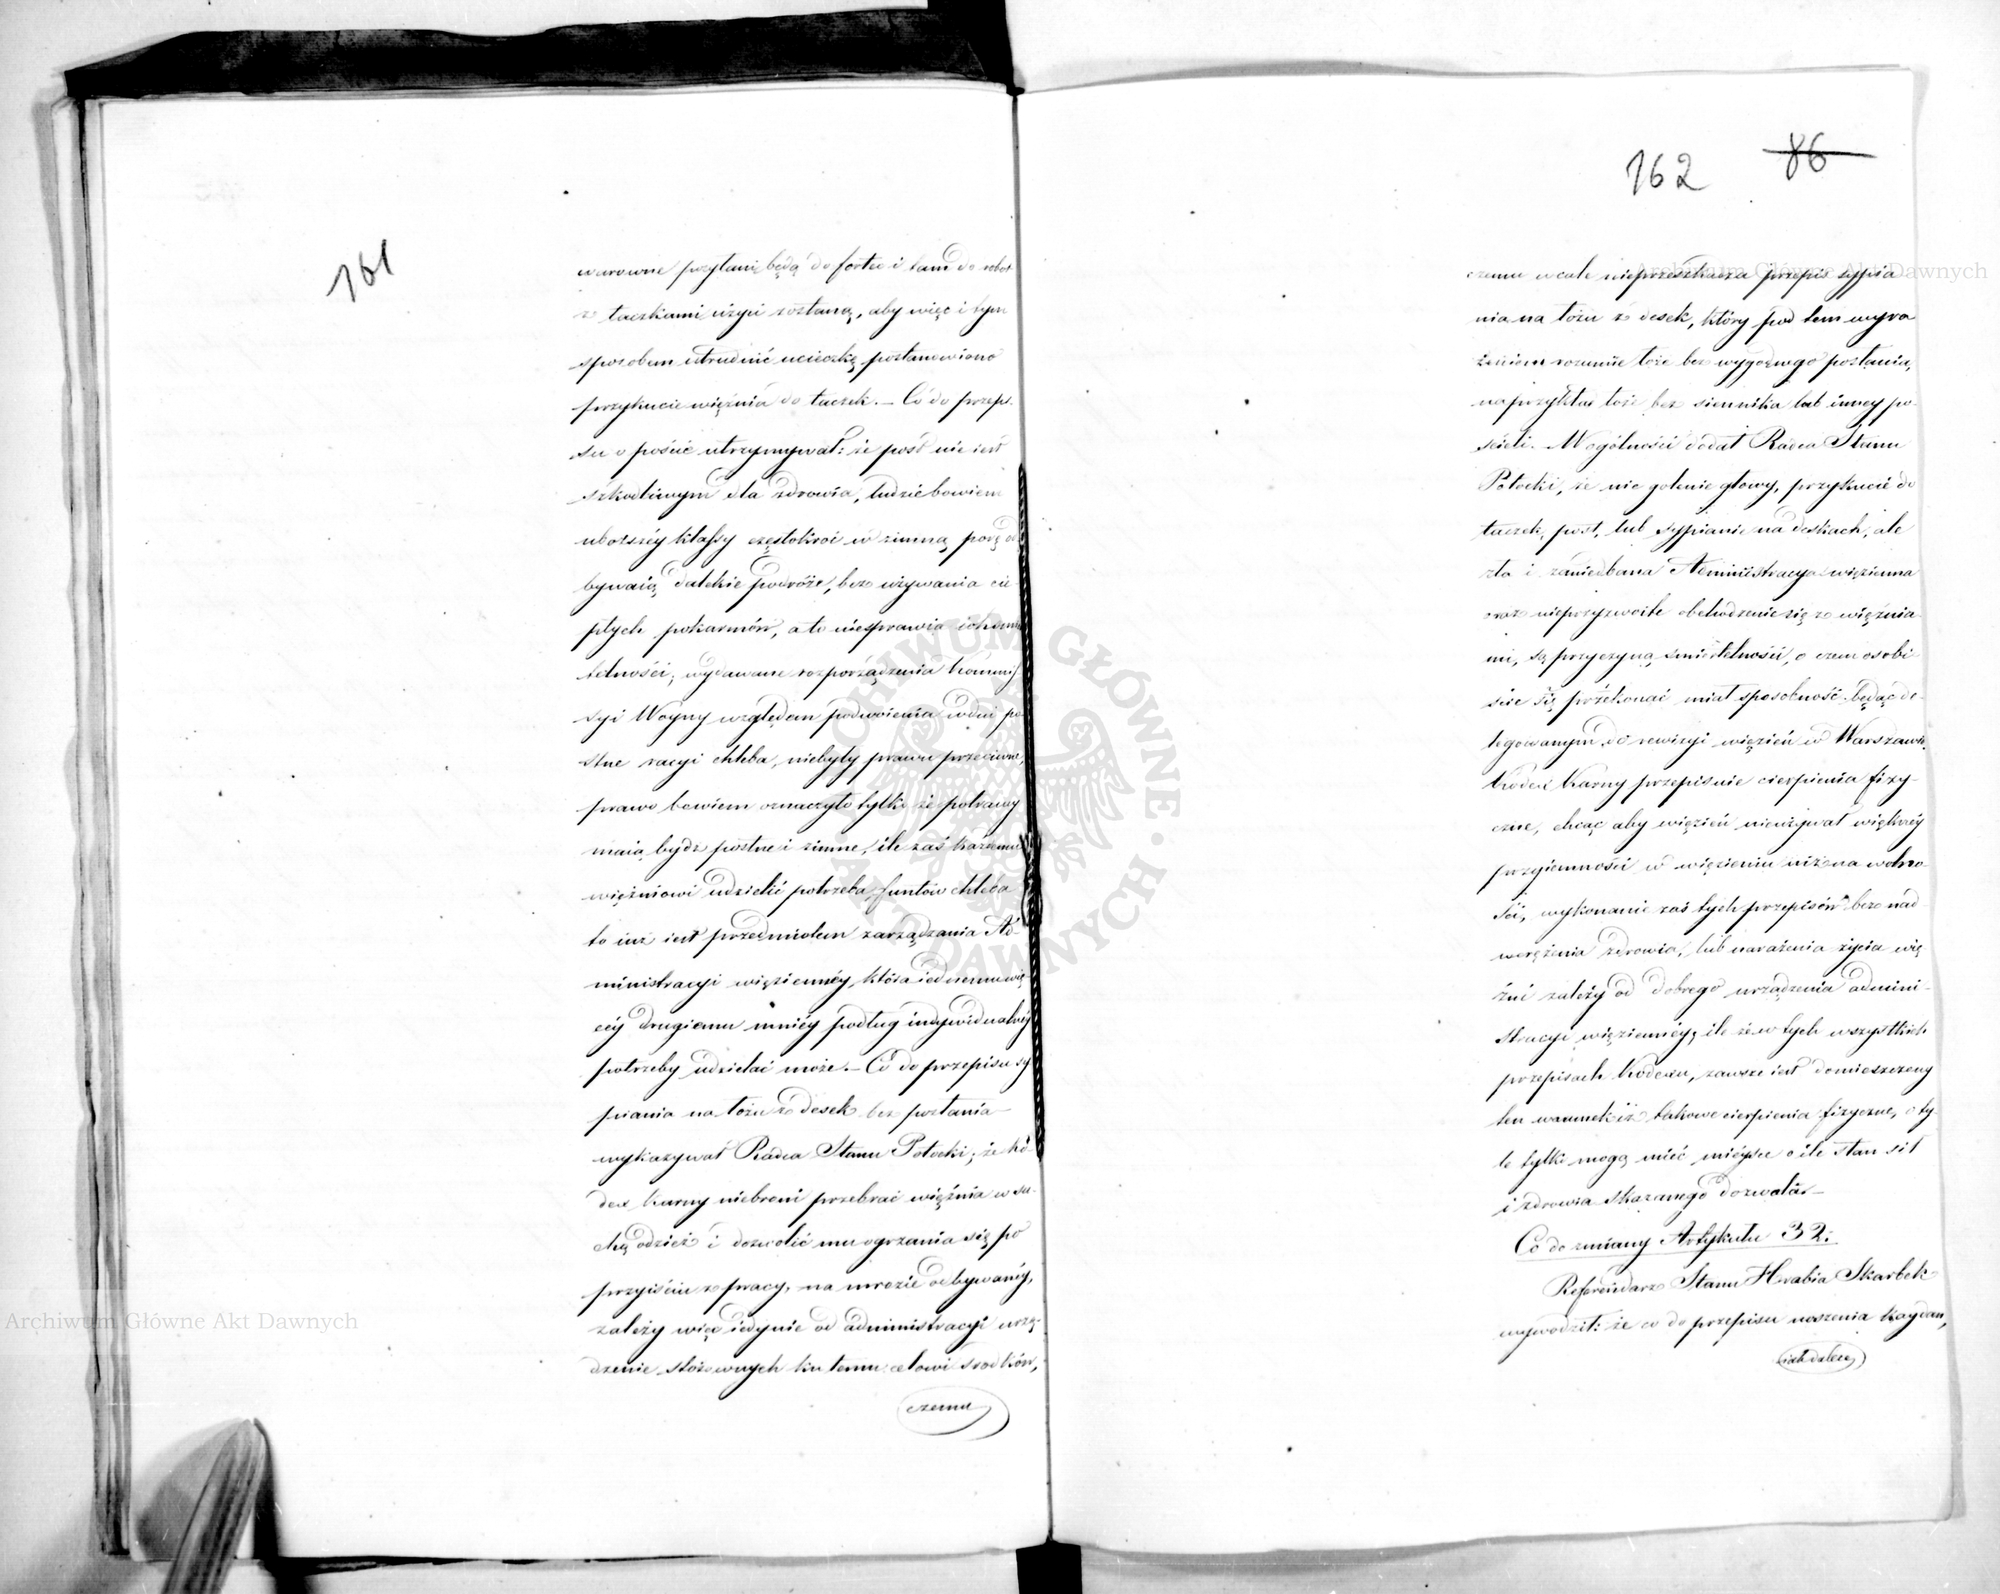 161
warowne przysłani będą do fortec i tam do robot
z taczkami użyci zostaną, aby więc i tym
sposobem utrudnić ucieczkę postanowiono
przykucie więźnia do taczek. – Co do przepi-
su o poście utrzymywał: że post nie iest
szkodliwym dla zdrowia, ludzie bowiem
uboższéy klassy częstokroć w zimną porę od
bywaią dalekie podróże, bez używania cie
płych pokarmów, a to niesprawia ich śmier
telności; wydawane rozporządzenia Kommis
syi Woyny względem podwoienia w dni po
stne racyi chleba, niebyły prawu przeciwne,
prawo bowiem oznaczyło tylko że potrawy
maią bydź postne i zimne, ile zaś każdemu
więźniowi udzielić potrzeba funtów chleba
to iuż iest przedmiotem zarządzania Ad-
ministracyi więzienney, która iednemu wię
céy drugiemu mniéy podług indywidualnéy
potrzeby udzielać może. – Co do przepisu sy
piania na łożu z desek bez posłania
wykazywał Radca Stanu Potocki; że Ko-
dex karny niebroni przebrać więźnia w su-
chą odzież i dozwolić mu ogrzania się po
przyiściu z pracy, na mrozie odbywanéy,
zależy więc iedynie od administracyi urzą-
dzenie stosownych ku temu celowi srodków,
czemu
162 86
czemu wcale nieprzeszkadza przepis sypia
nia na łożu z desek, który pod tem wyra
żeniem rozumie łoże bez wygodnego posłania,
naprzykład łoże bez siennika lub inney po-
ścieli. Wogólności dodał Radca Stanu
Potocki, że nie golenie głowy, przykucie do
taczek, post, lub sypianie na deskach, ale
zła i zaniedbana Administracya więzienna
oraz nieprzyzwoite obchodzenie się z więźnia-
mi, są przyczyną śmiertelności, o czem osobi
ście się przekonać miał sposobność będąc de-
legowanym do rewizyi więzień w Warszawie.
Kodex Karny przepisuie cierpienia fizy-
czne, chcąc aby więzień nieużywał większéy
przyiemności w więzieniu niż na wolno-
ści, wykonanie zaś tych przepisów bez nad
werężenia zdrowia, lub narażenia życia wię
źni zależy od dobrego urządzenia admini-
stracyi więziennéy, ile że w tych wszystkich
przepisach Kodexu, zawsze iest domieszczony
ten warunek iż takowe cierpienia fizyczne, o ty
le tylko mogą mieć mieysce o ile stan sił
i zdrowia skazanego dozwala. –
Co do zmiany Artykułu 32:
Referendarz Stanu Hrabia Skarbek
wywodził: że co do przepisu noszenia kaydan,
iak dalece
Archiwum Główne Akt Dawnych
ARCHIWUM GŁÓWNE AKT DAWNYCH
Archiwum Główne Akt Dawnych